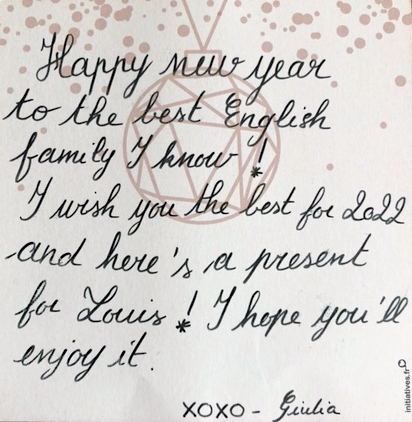 Happy new year
to the best English
family I know !
I wish you the best for 2022
and here's a present
for Louis ! I hope you'll
enjoy it.
XOXO - Giulia
initiatives.fr©